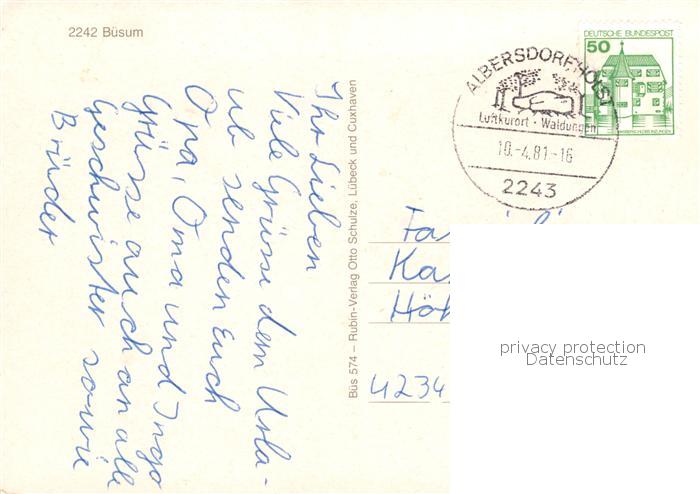 2242 Büsum
Ihr Lieben
Viele Grüsse dem Urla-
ub senden Euch
Opa, Oma und Ingo
Grüsse auch an alle
Geschwister sowie
Brüder
Büs 574 – Rubin-Verlag Otto Schulze, Lübeck und Cuxhaven
ALBERSDORF, HOLST
Luftkurort · Waldungen
10.-4.81-16
2243
DEUTSCHE BUNDESPOST
50
4234
privacy protection
Datenschutz